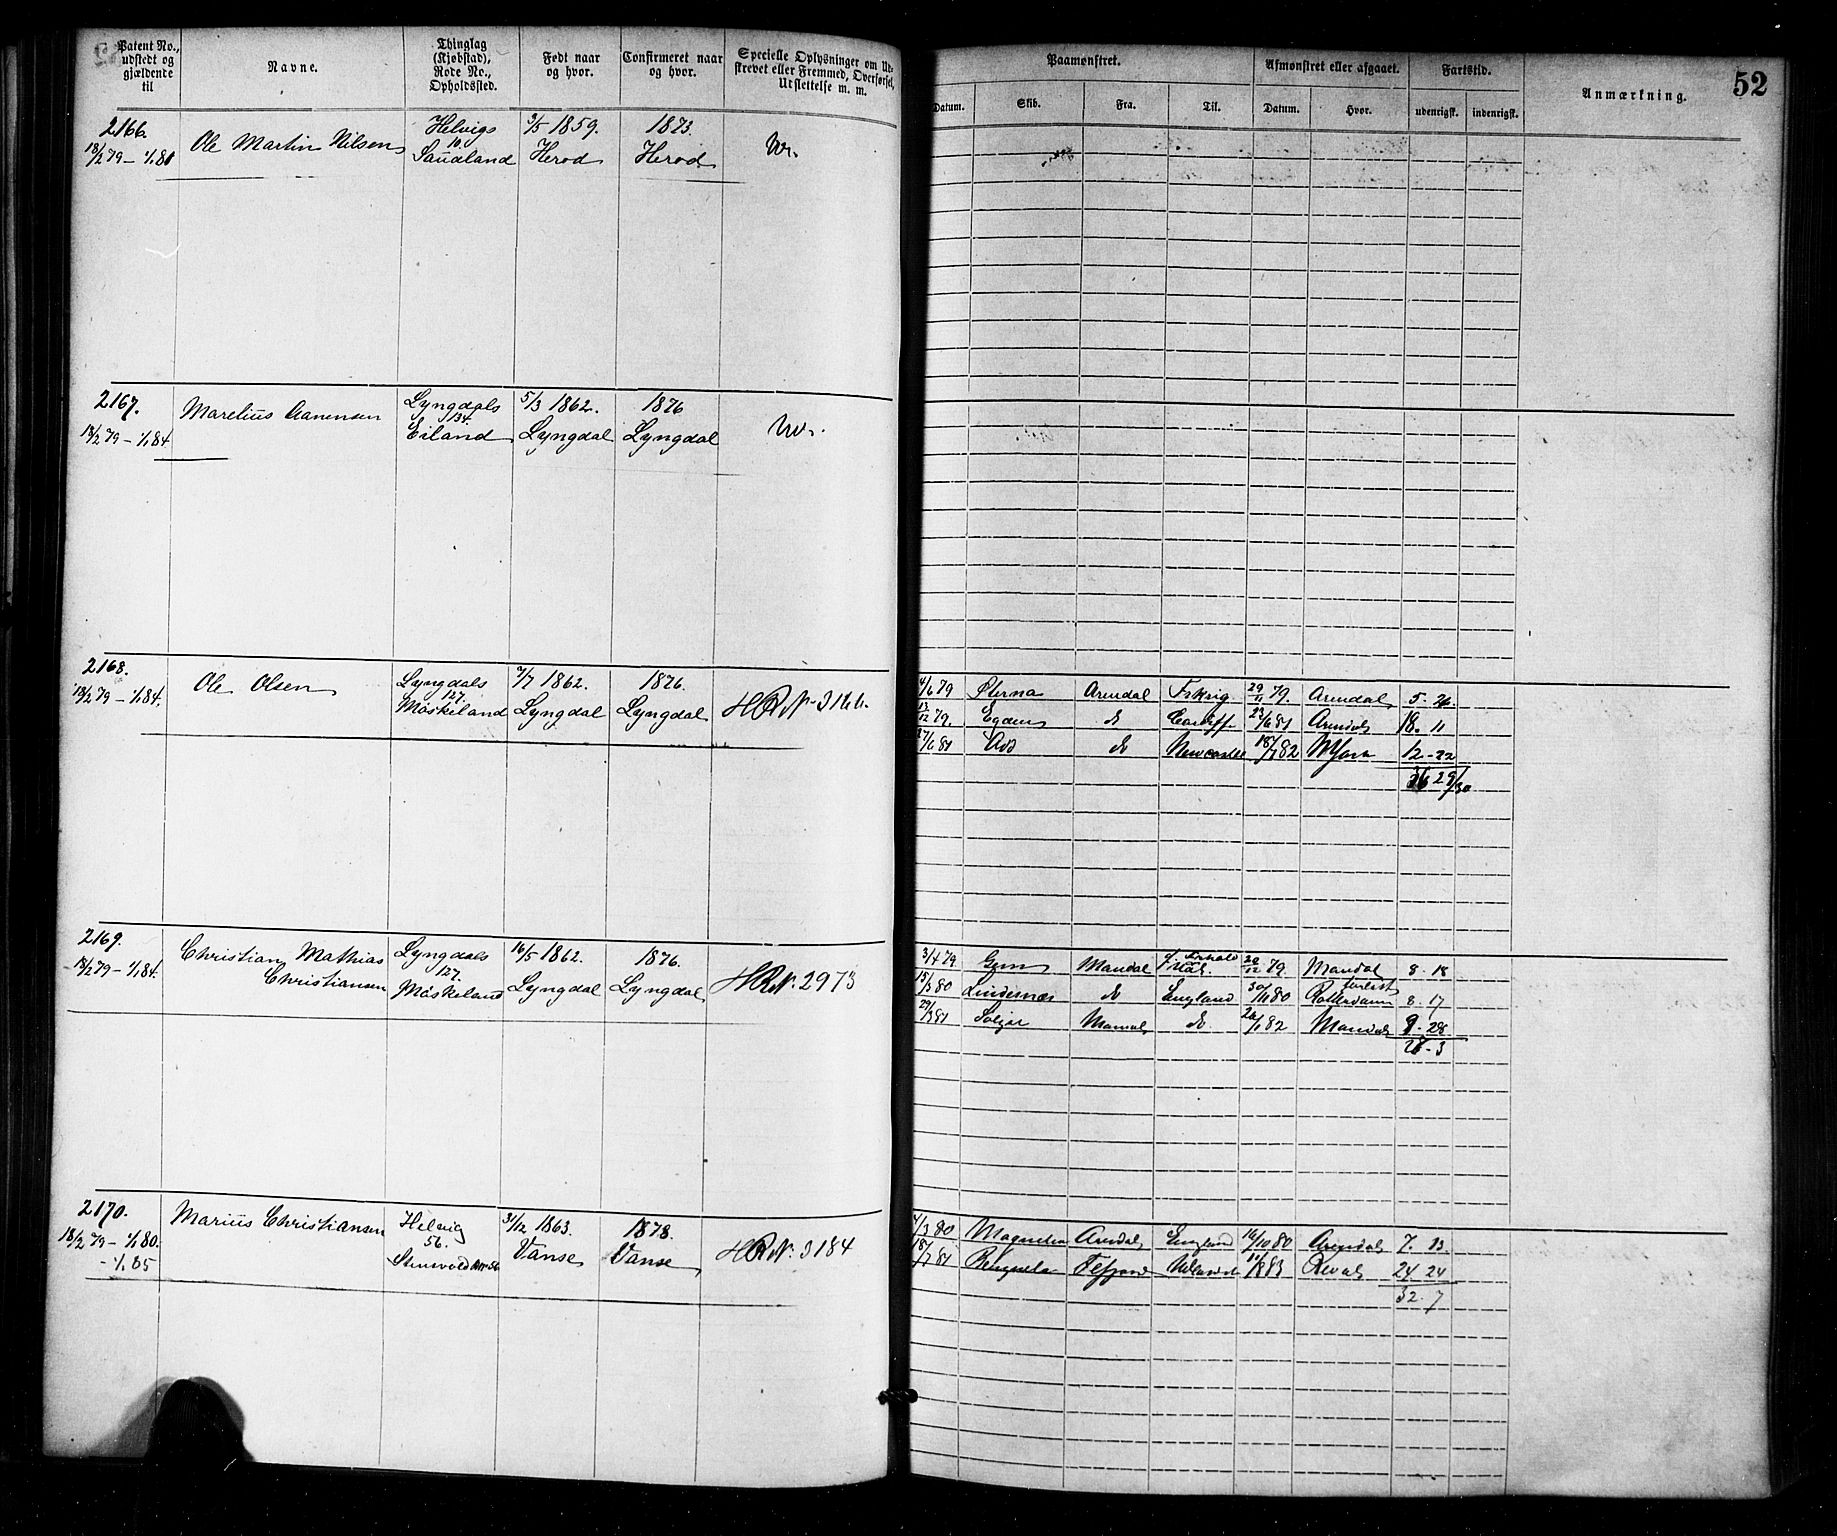 Patent No.,
udstedt og
gjældende
til
Navne.
Thinglag
(Kjøbstad),
Rode No.,
Opholdssted.
Født naar
og hvor.
Confirmeret naar
og hvor.
Specielle Oplysninger om Ud-
strevet eller Fremmed, Overførsel,
Udslettelse m. m.
Paamønstret.
Datum.
Skib.
Fra.
Til.
Afmønstret eller afgaaet.
Datum.
Hvor.
Fartstid.
udenrigsk.
indenrigsk.
Anmærkning.
52
2166.
18/2 79 - 1/1 81
Ole Martin Nilsen
Helvigs
10
Saudland
3/5 1859.
Herod
1873.
Herod
2167.
18/2 79 - 1/1 84
Marelius Aanensen
Lyngdals
134.
Eiland
5/3 1862.
Lyngdal
1876
Lyngdal
2168.
18/2 79 - 1/1 84.
Ole Olsen
Lyngdals
127.
Møskeland
7/7 1862.
Lyngdal
1876.
Lyngdal
4/6 79 Sterna Arendal 29/11 79. Arendal 5. 26.
13/12 79. Egden do Cardiff 23/6 81 Arendal 18. 11
27/6 81 do Newcastle 18/7 82 NYork 12 - 22
36 29/30
2169.
18/2 79 - 1/1 84.
Christian Mathias
Christiansen
Lyngdals
127.
Møskeland
16/5 1862.
Lyngdal
1876.
Lyngdal
HR N. 2973
3/4 79 Mandal 20/12 79. Mandal 8. 18
15/3 80 Lindesnæs do England 30/11 80 Rotterdam forlist 8. 17
29/3 81 Mandal do 26/1 82 Mandal 9. 28
27. 3
2170.
18/2 79 - 1/1 80.
- 1/1 85
Marius Christiansen
Helvig
56.
31/12 1863.
Vanse
1878.
Vanse
HR N. 3184
4/3 80 Arendal England 16/10 80 Arendal 7. 13
18/7 81 Benguela Tefjord Udlandet Reval 24 24
32. 7